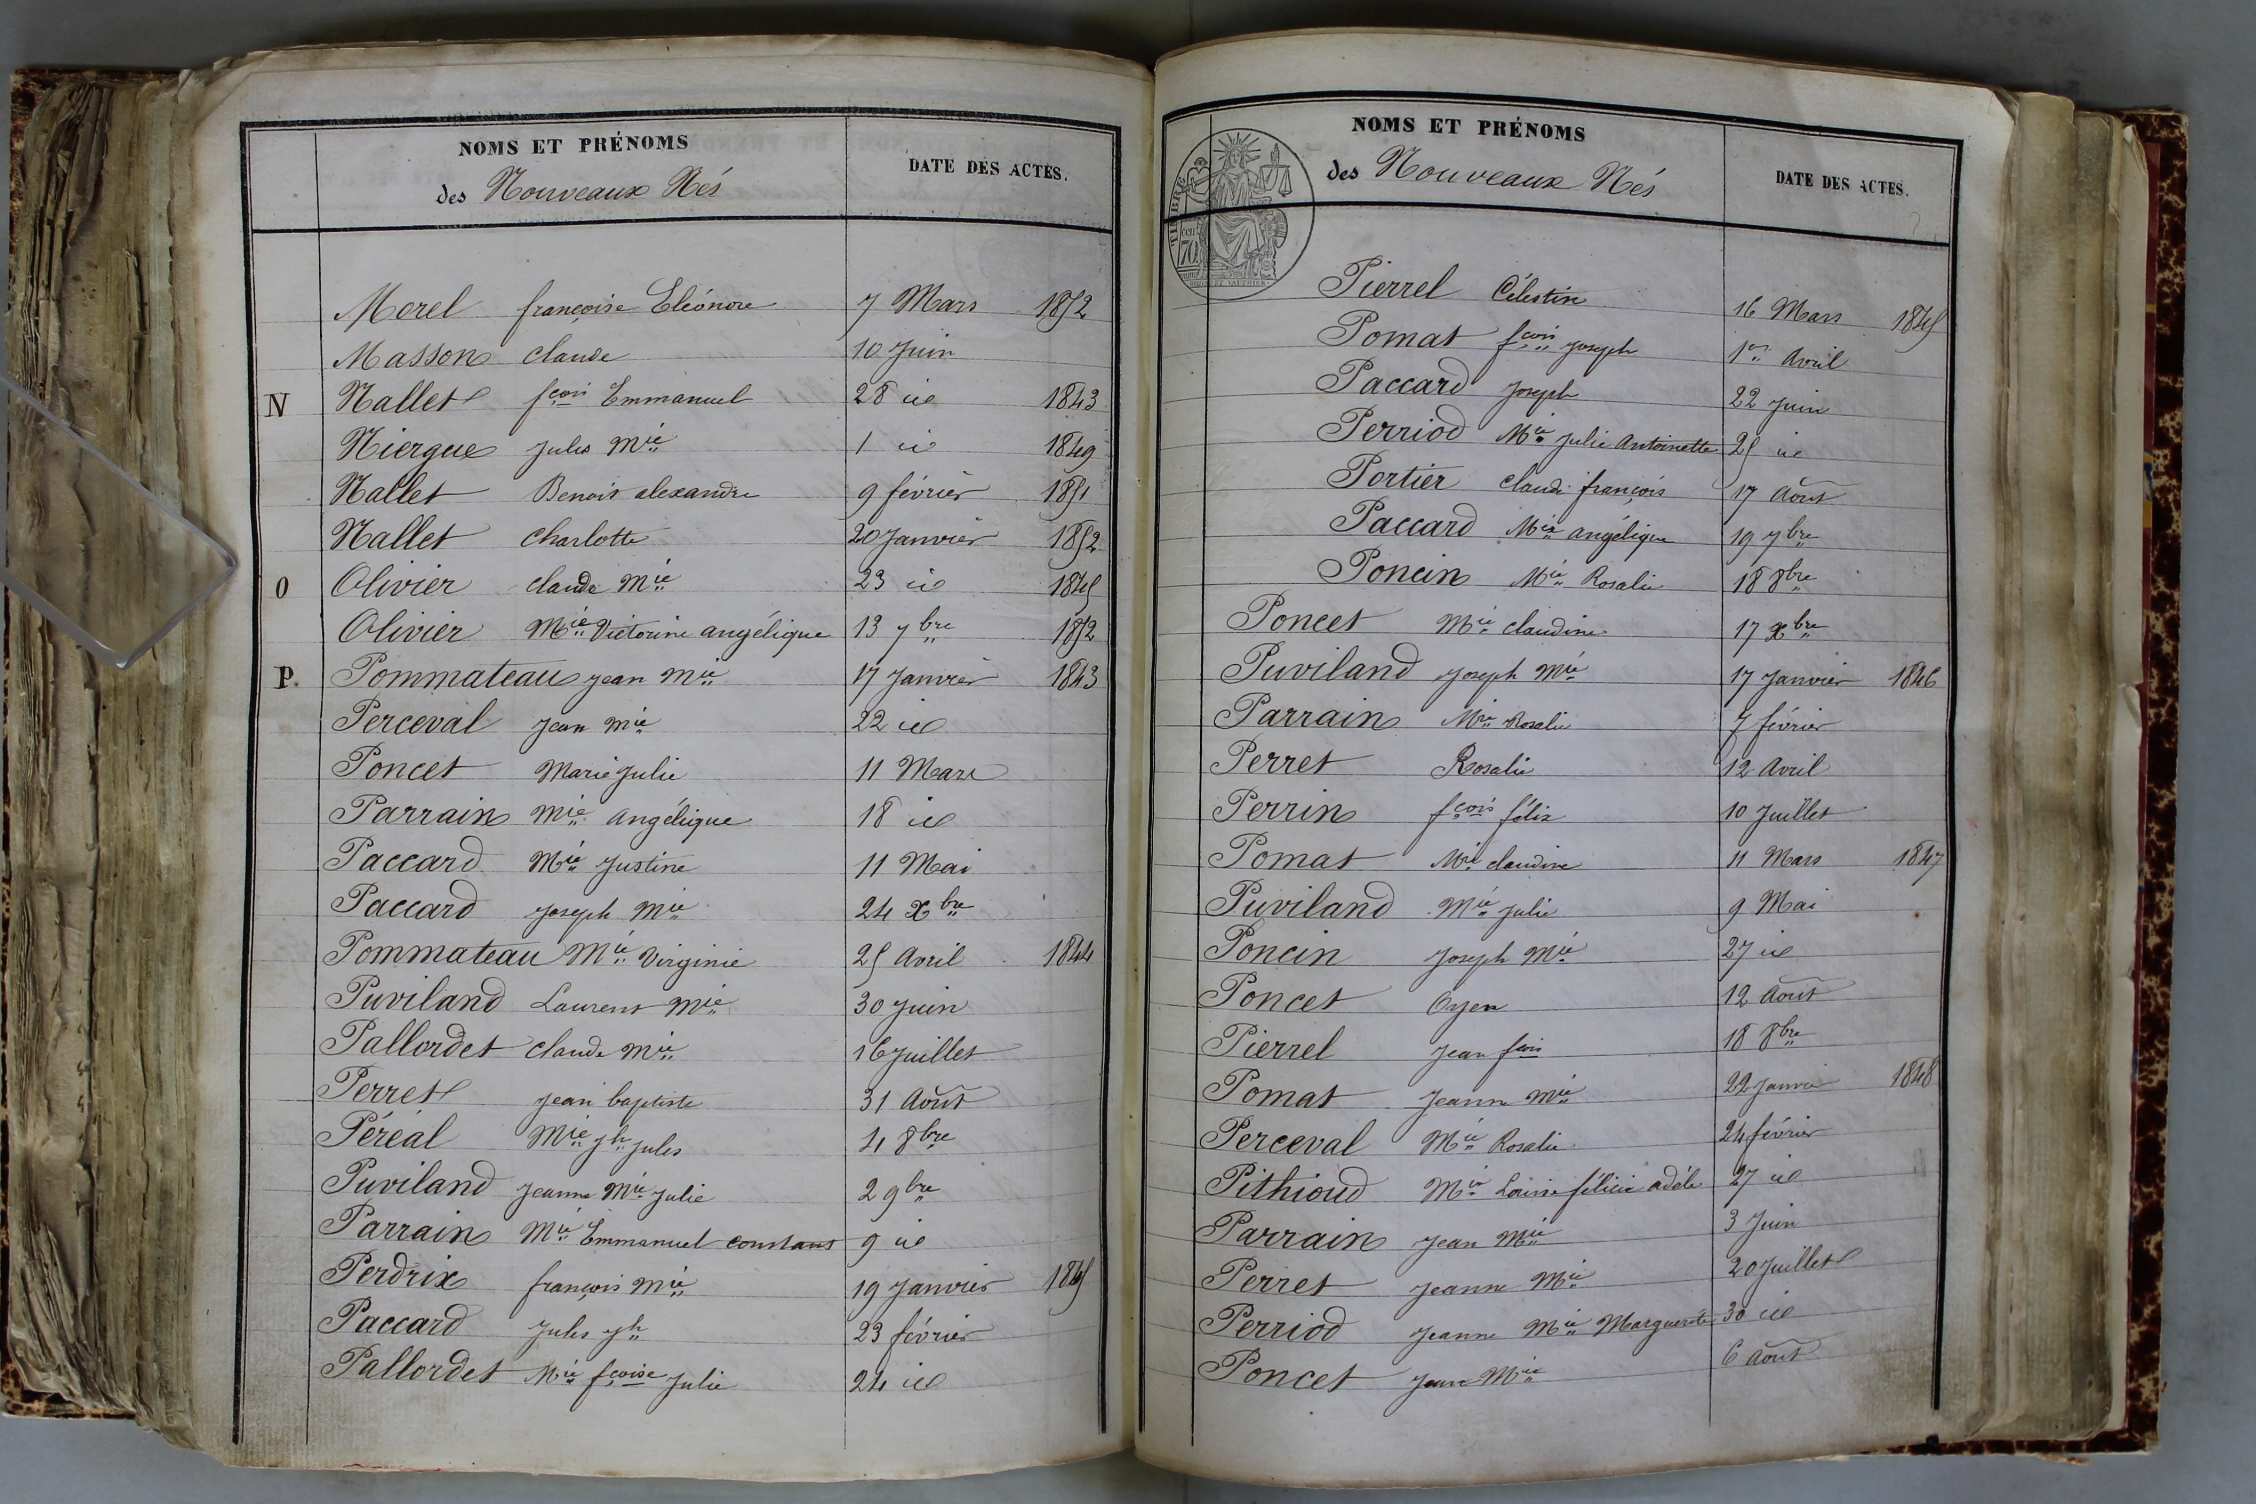 NOMS ET PRÉNOMS
des Nouveaux Nés
DATE DES ACTES.
Morel françoise Eléonore 7 Mars 1852
Masson claude 10 Juin
N Nallet fçois Emmanuel 28 id 1843
Niergue Jules Mie 1 id 1849
Nallet Benois alexandre 9 février 1851
Nallet charlotte 20 Janvier 1852
O Olivier claude Mie 23 id 1845
Olivier Mie Victorine angélique 13 7bre 1852
P. Pommateau jean Mie 17 Janvier 1843
Perceval Jean Mie 22 id
Poncet Marie Julie 11 Mars
Parrain Mie Angélique 18 id
Paccard Mie Justine 11 Mai
Paccard Joseph Mie 24 Xbre
Pommateau Mie Virginie 25 Avril 1844
Puviland Laurent Mie 30 Juin
Pallordet claude Mie 16 Juillet
Perret jean baptiste 31 Août
Péréal Mie Jh Jules 4 8bre
Puviland Jeanne Mie Julie 2 9bre
Parrain Mie Emmanuel constant 9 id
Perdrix françois Mie 19 Janvier 1845
Paccard Jules Jh 23 février
Pallordet Mie fçoise Julie 24 id
NOMS ET PRÉNOMS
des Nouveaux Nés
DATE DES ACTES.
70
Pierrel Célestin 16 Mars 1845
Pomat fçois Joseph 1er Avril
Paccard Joseph 22 Juin
Perriod Mie Julie Antoinette 25 id
Portier claude françois 17 Août
Paccard Mie angélique 19 7bre
Poncin Mie Rosalie 18 8bre
Poncet Mie claudine 17 Xbre
Puviland Joseph Mie 17 Janvier 1846
Parrain Mie Rosalie 7 février
Perret Rosalie 12 Avril
Perrin fçois félix 10 Juillet
Pomat Mie claudine 11 Mars 1847
Puviland Mie Julie 9 Mai
Poncin Joseph Mie 27 id
Poncet Oyen 12 Août
Pierrel Jean fçois 18 8bre
Pomat Jeanne Mie 22 Janvier 1848
Perceval Mie Rosalie 24 février
Pithioud Mie Louise félicie adèle 27 id
Parrain Jean Mie 3 Juin
Perret Jeanne Mie 20 Juillet
Perriod Jeanne Mie Marguerite 30 id
Poncet Jean Mie 6 Août